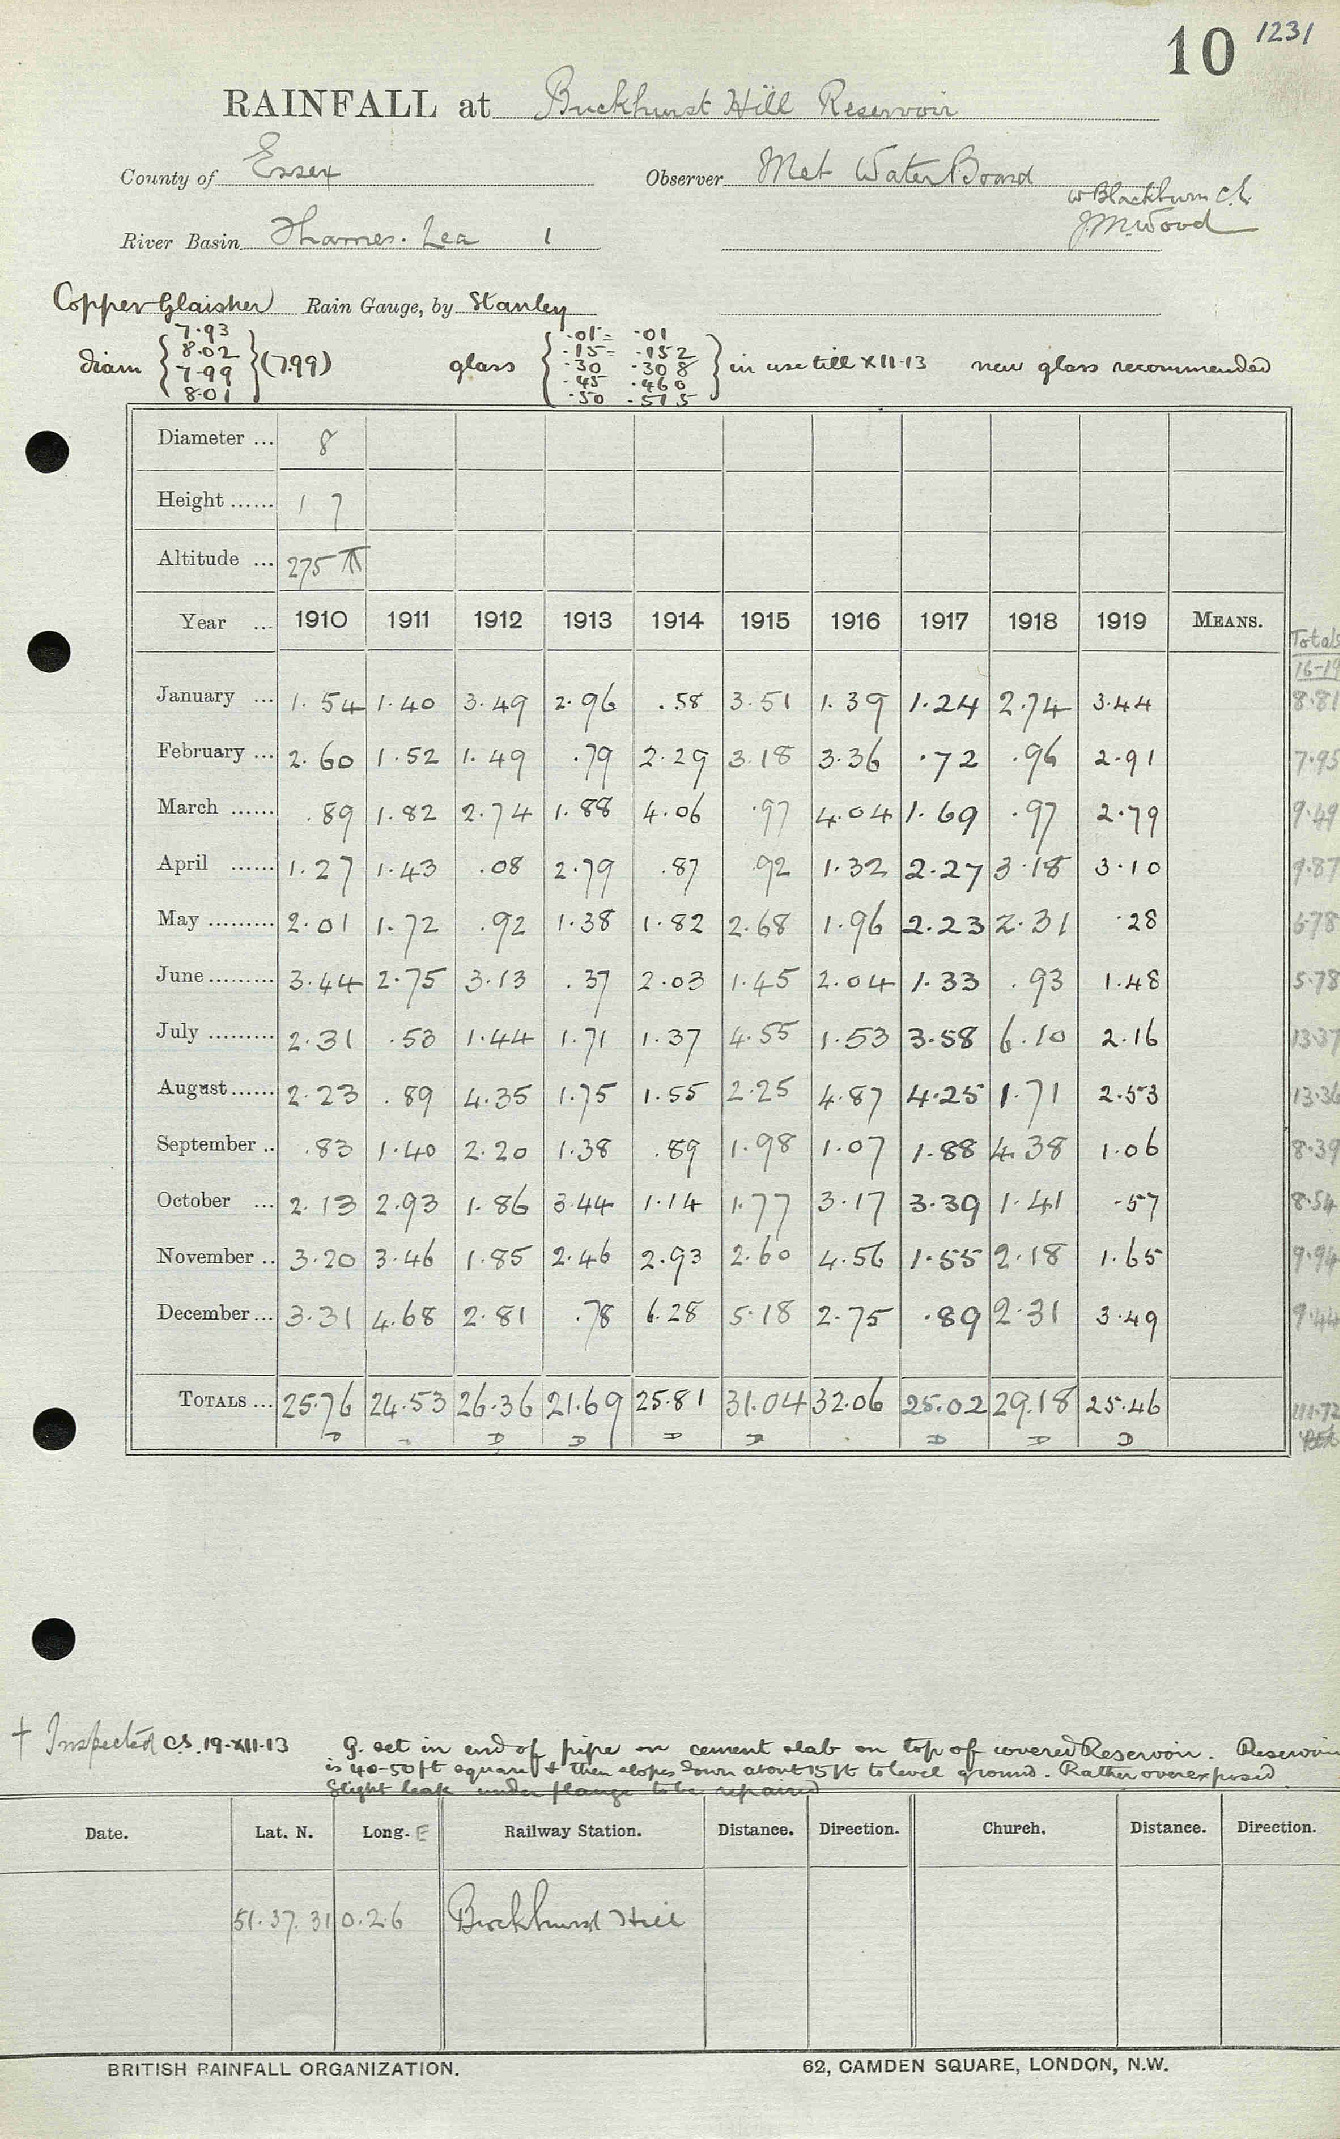 10 1231
RAINFALL at Buckhurst Hill Reservoir
County of Essex Observer Met Water Board
W Blackburn C.E.
River Basin Thames. Lea 1 J.M.Wood
Copper Glaisher Rain Gauge, by Stanley
diam { 7.93 8.02 7.99 8.01 } (7.99) glass { .01 = .01 .15 = .152 .30 .308 .45 .460 .50 .515 } in use till XII.13 new glass recommended
Diameter ... 8
Height ...... 1 7
Altitude ... 275 ft
Year ... 1910 1911 1912 1913 1914 1915 1916 1917 1918 1919 MEANS. Totals 16-19
January ... 1.54 1.40 3.49 2.96 .58 3.51 1.39 1.24 2.74 3.44 8.81
February ... 2.60 1.52 1.49 .79 2.29 3.18 3.36 .72 .96 2.91 7.95
March ...... .89 1.82 2.74 1.88 4.06 .97 4.04 1.69 .97 2.79 9.49
April ...... 1.27 1.43 .08 2.79 .87 .92 1.32 2.27 3.18 3.10 9.87
May ......... 2.01 1.72 .92 1.38 1.82 2.68 1.96 2.23 2.31 .28 6.78
June ......... 3.44 2.75 3.13 .37 2.03 1.45 2.04 1.33 .93 1.48 5.78
July ......... 2.31 .53 1.44 1.71 1.37 4.55 1.53 3.58 6.10 2.16 13.37
August ...... 2.23 .89 4.35 1.75 1.55 2.25 4.87 4.25 1.71 2.53 13.36
September .. .83 1.40 2.20 1.38 .89 1.98 1.07 1.88 4.38 1.06 8.39
October ... 2.13 2.93 1.86 3.44 1.14 1.77 3.17 3.39 1.41 .57 8.54
November .. 3.20 3.46 1.85 2.46 2.93 2.60 4.56 1.55 2.18 1.65 9.94
December ... 3.31 4.68 2.81 .78 6.28 5.18 2.75 .89 2.31 3.49 9.44
TOTALS ... 25.76 24.53 26.36 21.69 25.81 31.04 32.06 25.02 29.18 25.46 111.72
D D D D D D D D
† Inspected C.S. 19.XII.13 G. set in end of pipe on cement slab on top of covered Reservoir. Reservoir
is 40-50ft square & then slopes down about 15ft to level ground. Rather overexposed
Slight leak under flange to be repaired
Date. Lat. N. Long. E Railway Station. Distance. Direction. Church. Distance. Direction.
51.37.31 0.2.6 Buckhurst Hill
BRITISH RAINFALL ORGANIZATION. 62, CAMDEN SQUARE, LONDON, N.W.